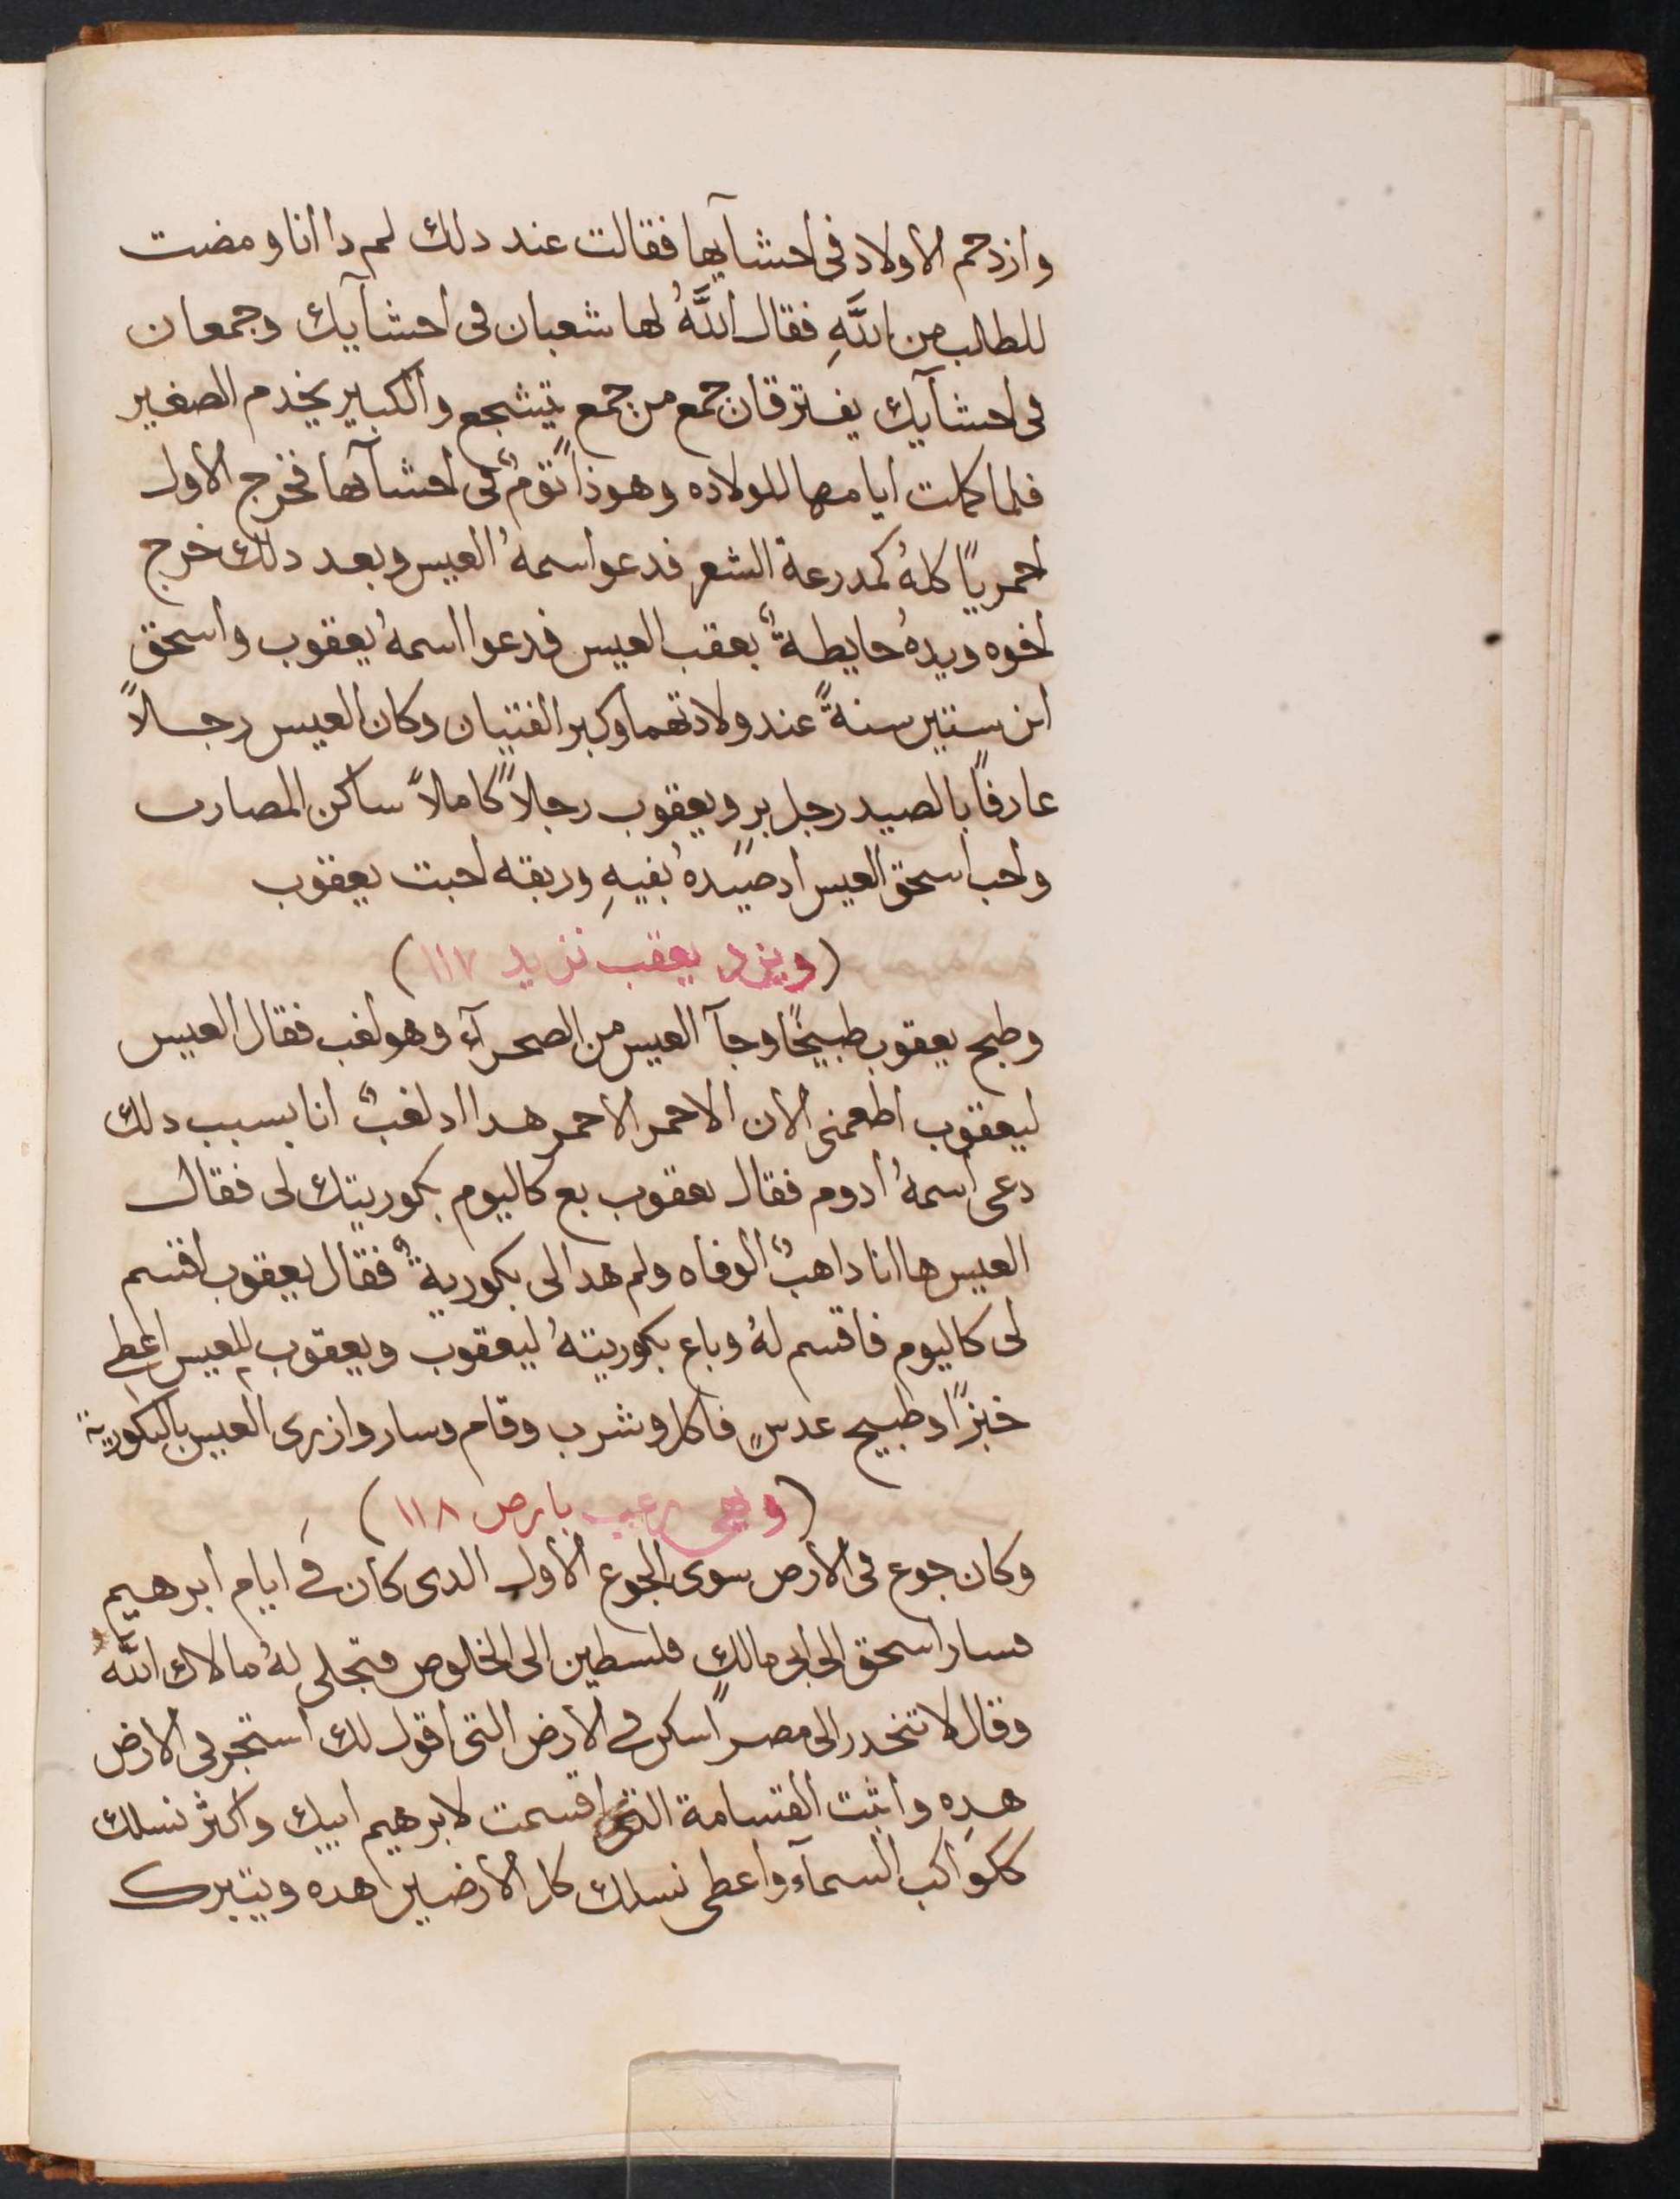 وازدحم الاولاد فى احشآيها فقالت عند دلك لم دا انا ومضت
للطالب من اللَّهِ فقال اللَّهُ لها شعبان فى احشآيك وجمعان
فى احشآيك يفترقان جمع من جمع يتشجع والكبير يخدم الصغير
فلما كملت ايامها للولاده وهوذا توّمٌ فى احشآها فخرج الاول
احمريًا كلهُ كمدرعة الشعر فدعوا اسمهُ العيس وبعد دلك خرج
اخوه ويدهُ حايطةٌ بعقب العيس فدعوا اسمهُ يعقوب واسحق
ابن ستين سنةً عند ولادتهما وكبر الفتيان وكان العيس رجلاً
عارفًا بالصيد رجل برٍ ويعقوب رجلاً كاملاً ساكن المصارب
واحب اسحق العيس اد صيدهُ بفيهِ وربقه احبت يعقوب
(ويزد يعقب نزيد ١١٧)
وطبخ يعقوب طبيخًا وجآ العيس من الصحرآء وهو لغب فقال العيس
ليعقوب اطعمنى الان الاحمر الاحمر هدا اد لغبٌ انا بسبب دلك
دعى اسمهُ ادوم فقال يعقوب بع كاليوم بكوريتك لى فقال
العيس ها انا داهبٌ الوفاه ولم هدا لى بكوريةٌ فقال يعقوب اقسم
لى كاليوم فاقسم لهُ وباع بكوريتهُ ليعقوب ويعقوب للعيس اعطى
خبزًا وطبيخ عدسٍ فاكل وشرب وقام وسار وازرى العيس بالبكورية
(ويهى رعب بارص ١١٨)
وكان جوع فى الارص سوى الجوع الاول الدى كان فى ايام ابرهيم
فسار اسحق الى ابى مالك فلسطين الى الخلوص فتجلى لهُ ملاك اللَّه
وقال لا تنحدر الى مصر اسكن فى الارض التى اقول لك استجر فى الارض
هدهِ واثبت القسامة التى اقسمت لابرهيم ابيك واكثر نسلك
ككواكب السمآء واعطى نسلك كل الارضين هده ويتبرك